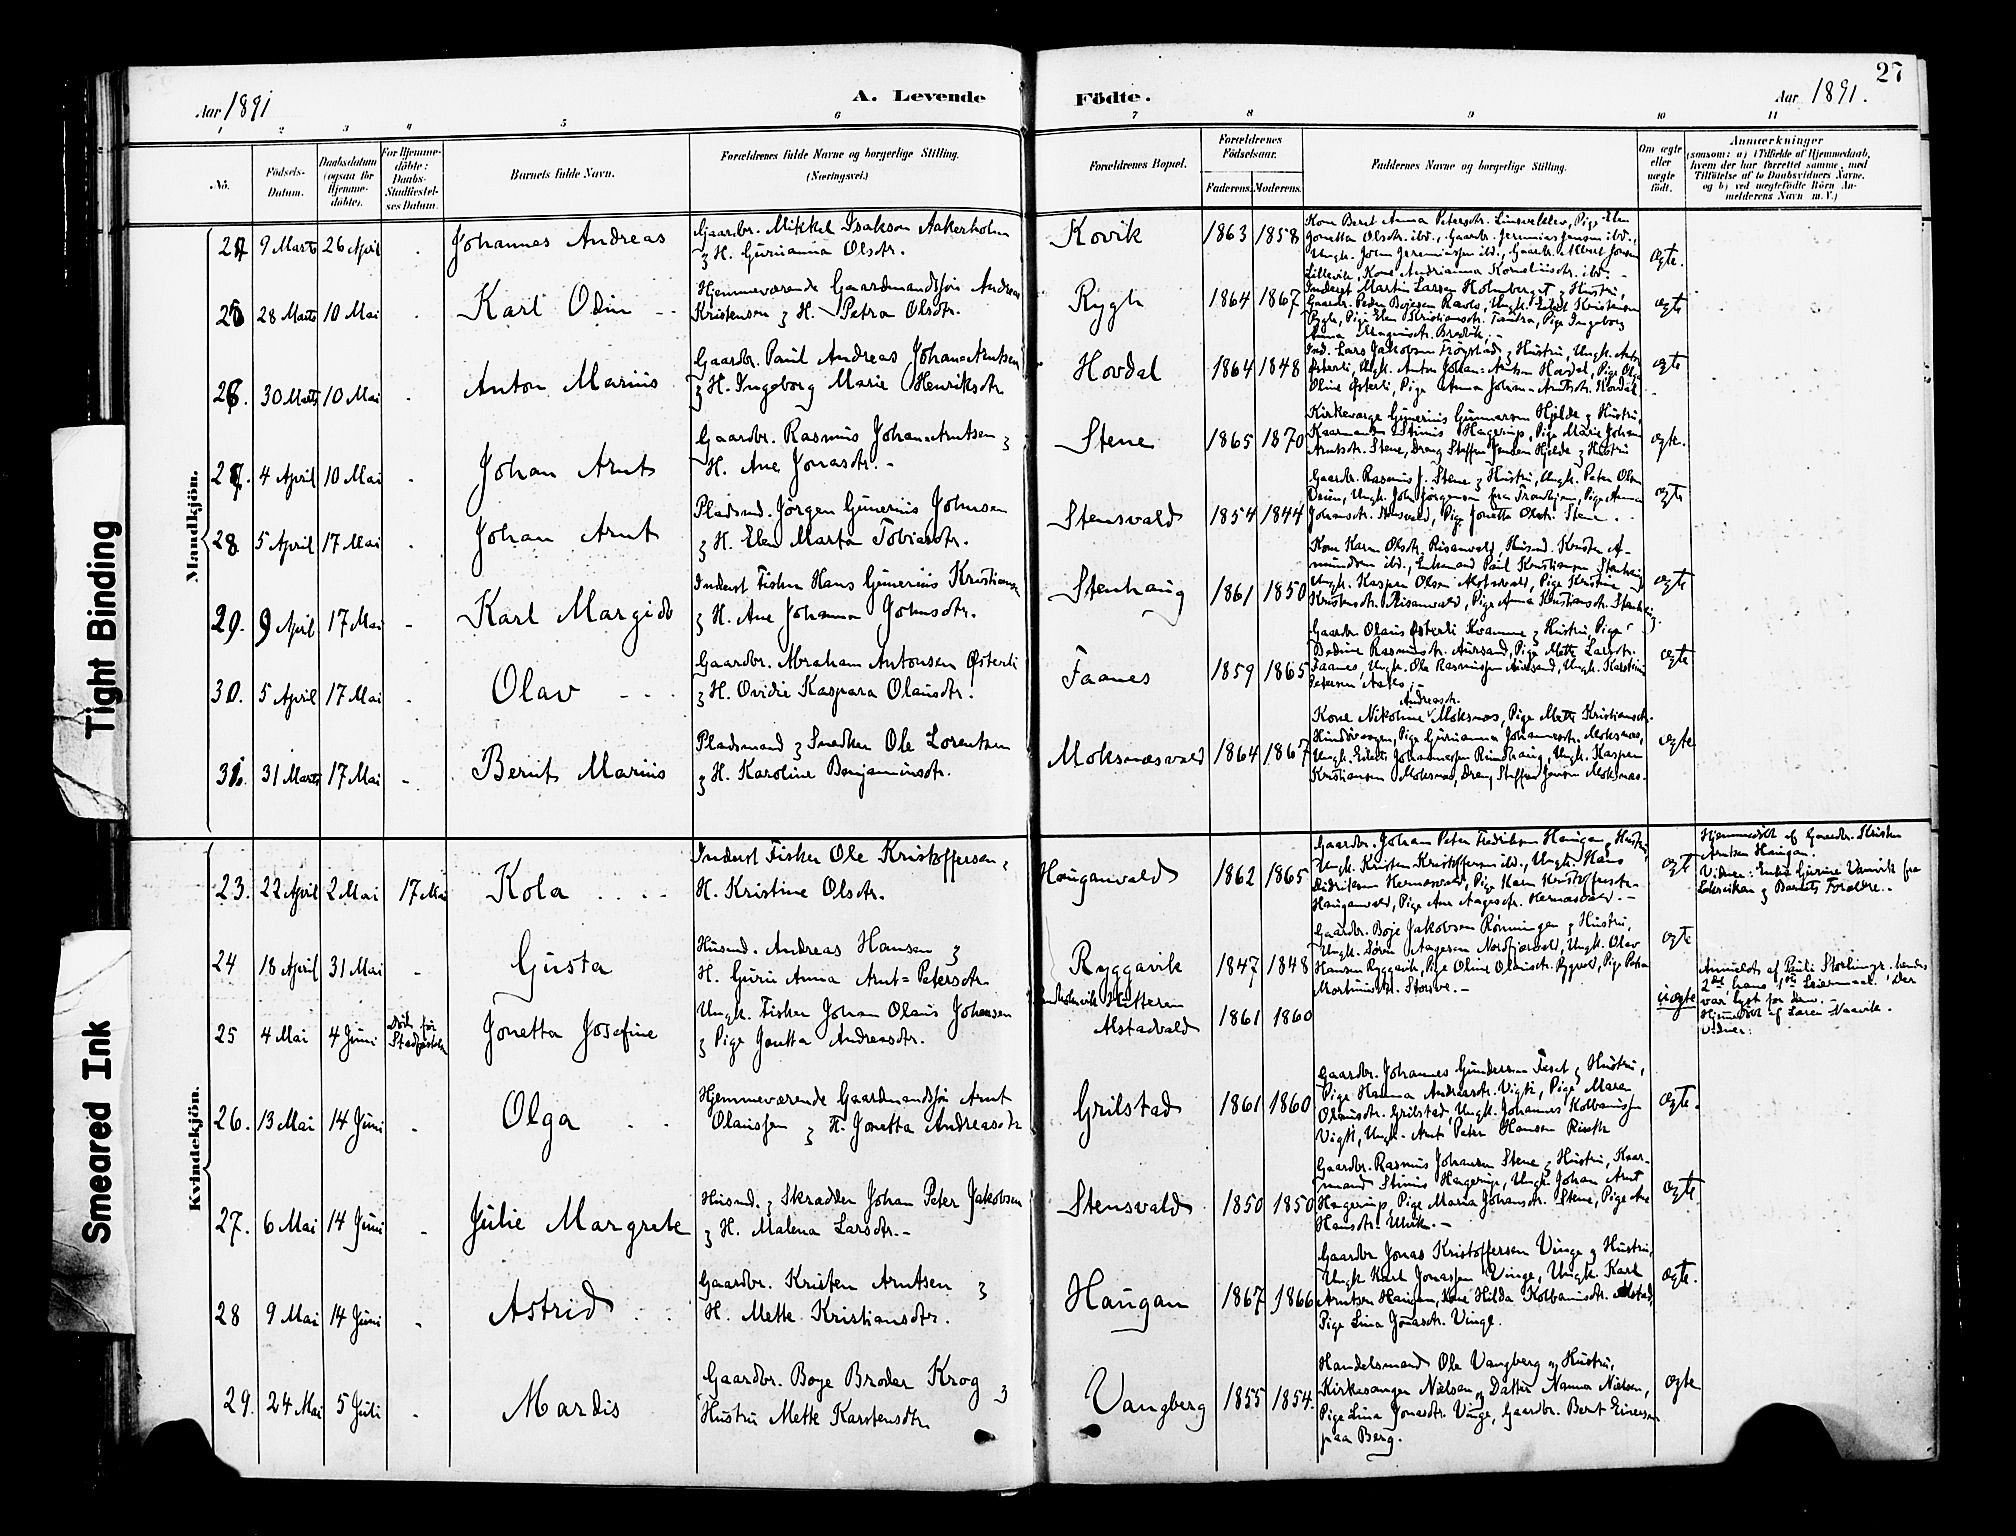 Tight Binding
Smeared Ink
27
Aar 1891
A. Levende
Födte.
Aar 1891.
1 2 3 4 5 6 7 8 9 10 11
No.
Födsels-
Datum.
Daabsdatum
(ogsaa for
Hjemme-
döbte).
For Hjemme-
döbte:
Daabs-
Stadfæstel-
ses Datum.
Barnets fulde Navn.
Forældrenes fulde Navne og borgerlige Stilling.
(Næringsvei.)
Forældrenes Bopæl.
Forældrenes
Födselsaar.
Faderens. Moderens.
Faddernes Navne og borgerlige Stilling.
Om ægte
eller
uægte
födt.
Anmærkninger
(saasom: a) i Tilfælde af Hjemmedaab,
hvem der har forrettet samme, med
Tilföielse af to Daabsvidners Navne,
og b) ved uægtefödte Börn An-
melderens Navn m. V.)
Mandkjön.
9 Marts 26 April Johannes Andreas
Gaardbr. Mikkel Isaksen Aakerholm
& H. Gurianna Olsdtr.
Kovik 1863 1858
Kone Beret Anna Petersdtr. Pige Elen
Jonetta Olsdtr. ibd., Gaardbr. Jeremias Jensen ibd.,
Ungk. John Jeremiassen ibd., Gaardbr. Albert Jonsen
Lillevik, Kone Andrianna Korneliusdtr. ibd. -
ægte.
28 Marts 10 Mai Karl Odin
Hjemmeværende Gaardmandssøn Andreas
Kristensen & H. Petra Olsdtr.
Rygh 1864 1867
Inderst Martin Larsen Holmberget & Hustru,
Gaardbr. Peder Bojesen Ungk. Edvet Kristensen
Rygh, Pige Elen Kristiansdtr. Pige Ingeborg
Anna
ægte
26. 30 Marts 10 Mai Anton Marius
Gaardbr. Paul Andreas Johan=Arntsen
& H. Ingeborg Marie Henriksdtr.
Hovdal 1864 1848
Ind. Lars Jakobsen & Hustru, Ungk. Anton
Østerli, Ungk. Anton Johan=Arntsen Hovdal, Pige
Oline Østerli, Pige Anna Johan=Arntsdtr. Hovdal.
ægte
27. 4 April 10 Mai Johan Arnt
Gaardbr. Rasmus Johan=Arntsen &
H. Ane Jonasdtr. -
Stene 1865 1870
Kirkeværge Gunerius Gunnarsen Hjelde & Hustru,
Kaarmand Stinius Hagerup, Pige Marie Johan
Arntsdtr. Stene, Dreng Steffen Jensen Hjelde & Hustru
ægte.
28. 5 April 17 Mai Johan Arnt
Pladsmd. Jørgen Gunerius Johnsen
& H. Elen Marta Tobiasdtr.
Stensvald 1854 1844
Gaardbr. Rasmus J. Stene & Hustru, Ungk. Peter Olsen
Ungk. John Jørgensen fra Trondhjem, Pige Anna
Johansdtr. Stensvald, Pige Jonetta Olsdtr. Stene.
ægte
29. 9 April 17 Mai Karl Margido
Inderst Fisker Hans Gunerius Kristiansen
& H. Ane Johanna Johnsdtr.
Stenhaug 1861 1850
Kone Karen Olsdtr. Risanvald, Husmd. Kristen A-
mundsen ibd., Enkemand Paul Kristiansen Stenhaug
Ungk. Kaspar Olsen Pige Kristine
Kristensdtr. Risanvald, Pige Anna Kristiansdtr. Stenhaug.
ægte
30. 5 April 17 Mai Olav
Gaardbr. Abraham Antonsen Østerli
& H. Ovidie Kaspara Olausdtr.
Faanes 1859 1865
Gaardbr. Olaus Østerli Kvamme & Hustru, Pige
Bodine Rasmusdtr. Aursand, Pige Mette Larsdtr.
Faanes, Ungk. Ole Rasmussen Aursand, Ungk. Karstinus
Petersen Aales.
ægte
31. 31 Marts 17 Mai Bernt Marius
Pladsmand & Snedker Ole Lorentzen
& H. Karoline Benjaminsdtr.
Moksnæsvald 1864 1867
Andreasdtr.
Kone Nikoline Moksnæs, Pige Mette Kristiansdtr.
Pige Gurianna Johannesdtr. Moksnæs,
Ungk. Edvet Johannessen Rundhaug, Ungk. Kaspar
Kristiansen Moksnæs, Dreng Steffen Jensen Moksnæs.
ægte
Kvindekjön.
23. 22 April 2 Mai 17 Mai Kola
Inderst Fisker Ole Kristoffersen &
H. Kristine Olsdtr.
Hauganvald 1862 1865
Gaardbr. Johan Peter Fredriksen Haugan & Hustru,
Ungk. Kristen Kristoffersen ibd., Ungk. Hans
Didriksen Hernæsvald, Pige Karen Kristoffersdtr.
Hauganvald, Pige Ane Aagesdtr. Hernæsvald. -
ægt
Hjemmedøbt af Gaardbr. Kristen
Arntsen Haugan.
Vidner: Enke Gurine Vanvik fra
Leksviken & Barnets Forældre. -
24 18 April 31 Mai Gusta
Husmd. Andreas Hansen &
H. Guru Anna Arnt=Petersdtr.
Ryggavik 1847 1848
Gaardbr. Boje Jakobsen Rønningen & Hustru,
Ungk. Søren Aagesen Ungk. Olav
Hansen Ryggavik, Pige Oline Olausdtr. Pige Petra
Martinusdtr. Storve. -
ægte
25 4 Mai 4 Juni Død før Stadfæstelse Jonetta Josefine
Ungk. Fisker Johan Olaus Johansen
& Pige Jonetta Andreasdtr.
Hitteren
Alstadvald 1861 1860
uægte
Anmeldt af Pauli hendes
2det hans 1ste Leiermaal. Der
var lyst for dem. -
Hjemmedøbt af Laren Naavik.
Vidner:
26. 13 Mai 14 Juni Olga
Hjemmeværende Gaardmandssøn Arnt
Olaussen & H. Jonetta Andreasdtr
Grilstad 1861 1860
Gaardbr. Johannes Gundersen & Hustru,
Pige Hanna Andreasdtr. Vigtil, Pige Maren
Olausdtr. Grilstad, Ungk. Johannes Kolbanussen
Vigtil, Ungk. Arnt Peter Hansen Riseth
ægte.
27. 6 Mai 14 Juni Julie Margrete
Husmd. & Skrædder Johan Peter Jakobsen
& H. Malena Larsdtr. -
Stensvald 1850 1850
Gaardbr. Rasmus Johansen Stene & Hustru, Kaar-
mand Stinius Hagerup, Ungk. Johan Arnt
Hagerup, Pige Maria Johansdtr. Stene, Pige Ane
Hansdtr. Ulvik. -
ægte.
28 9 Mai 14 Juni Astrid
Gaardbr. Kristen Arntsen &
H. Mette Kristiansdtr.
Haugan 1867 1866
Gaardbr Jonas Kristoffersen Vinge & Hustru,
Ungk Karl Jonassen Vinge, Ungk. Karl
Arntsen Haugan, Kone Hilda Kolbanusdtr. Alstad,
Pige Lina Jonasdtr. Vinge.
ægte.
29. 24 Mai 5 Juli Mardis
Gaardbr. Boye Broder Krog &
Hustru Mette Karstensdtr
Vangberg 1855 1854.
Handelsmand Ole Vangberg og Hustru,
Kirkesanger Nielsen og Datter Nanna Nielsen,
Pige Lina Jonasdtr. Vinge, Gaardbr. Bert Einersen
paa Berg.
ægte